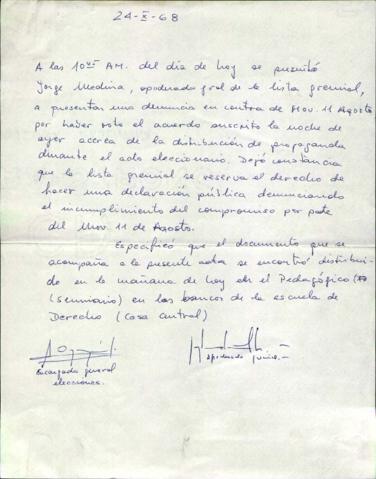 24-X-68
A las 10 AM. del día de hoy se presentó
Jorge Medina, apoderado gral de la lista gremial,
a presentar una denuncia en contra de Mov. 11 Agosto
por haber roto el acuerdo suscrito la noche de
ayer acerca de la distribución de propaganda
durante el acto eleccionario. Dejó constancia
que la lista gremial se reserva el derecho de
hacer una declaración pública denunciando
el incumplimiento del compromiso por parte
del Mov. 11 de Agosto.
Especificó que el documento que se
acompaña a la presente acta se encontró distribui-
do en la mañana de hoy en el Pedagógico
(Seminario) en los bancos de la escuela de
Derecho (Casa Central)
Encargado general
elecciones.
apoderado